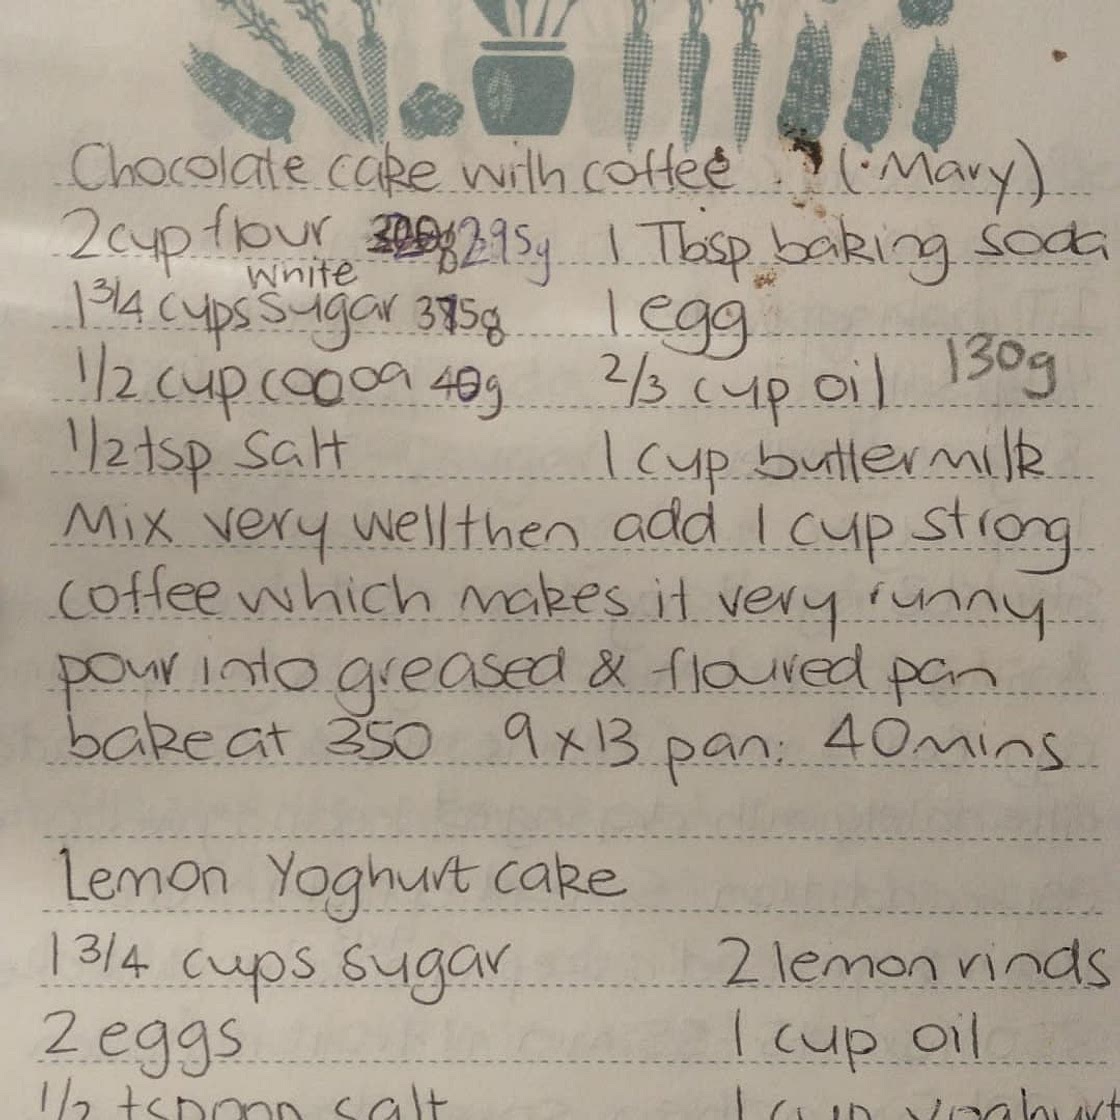 Chocolate cake with coffee (Mary)
2 cup flour 295g 1 Tbsp baking soda
white
1 3/4 cups sugar 375g 1 egg
1/2 cup cocoa 40g 2/3 cup oil 130g
1/2 tsp salt 1 cup buttermilk
Mix very well then add 1 cup strong
coffee which makes it very runny
pour into greased & floured pan
bake at 350 9 x 13 pan: 40 mins
Lemon Yoghurt cake
1 3/4 cups sugar 2 lemon rinds
2 eggs 1 cup oil
1/2 tspoon salt 1 cup yoghurt